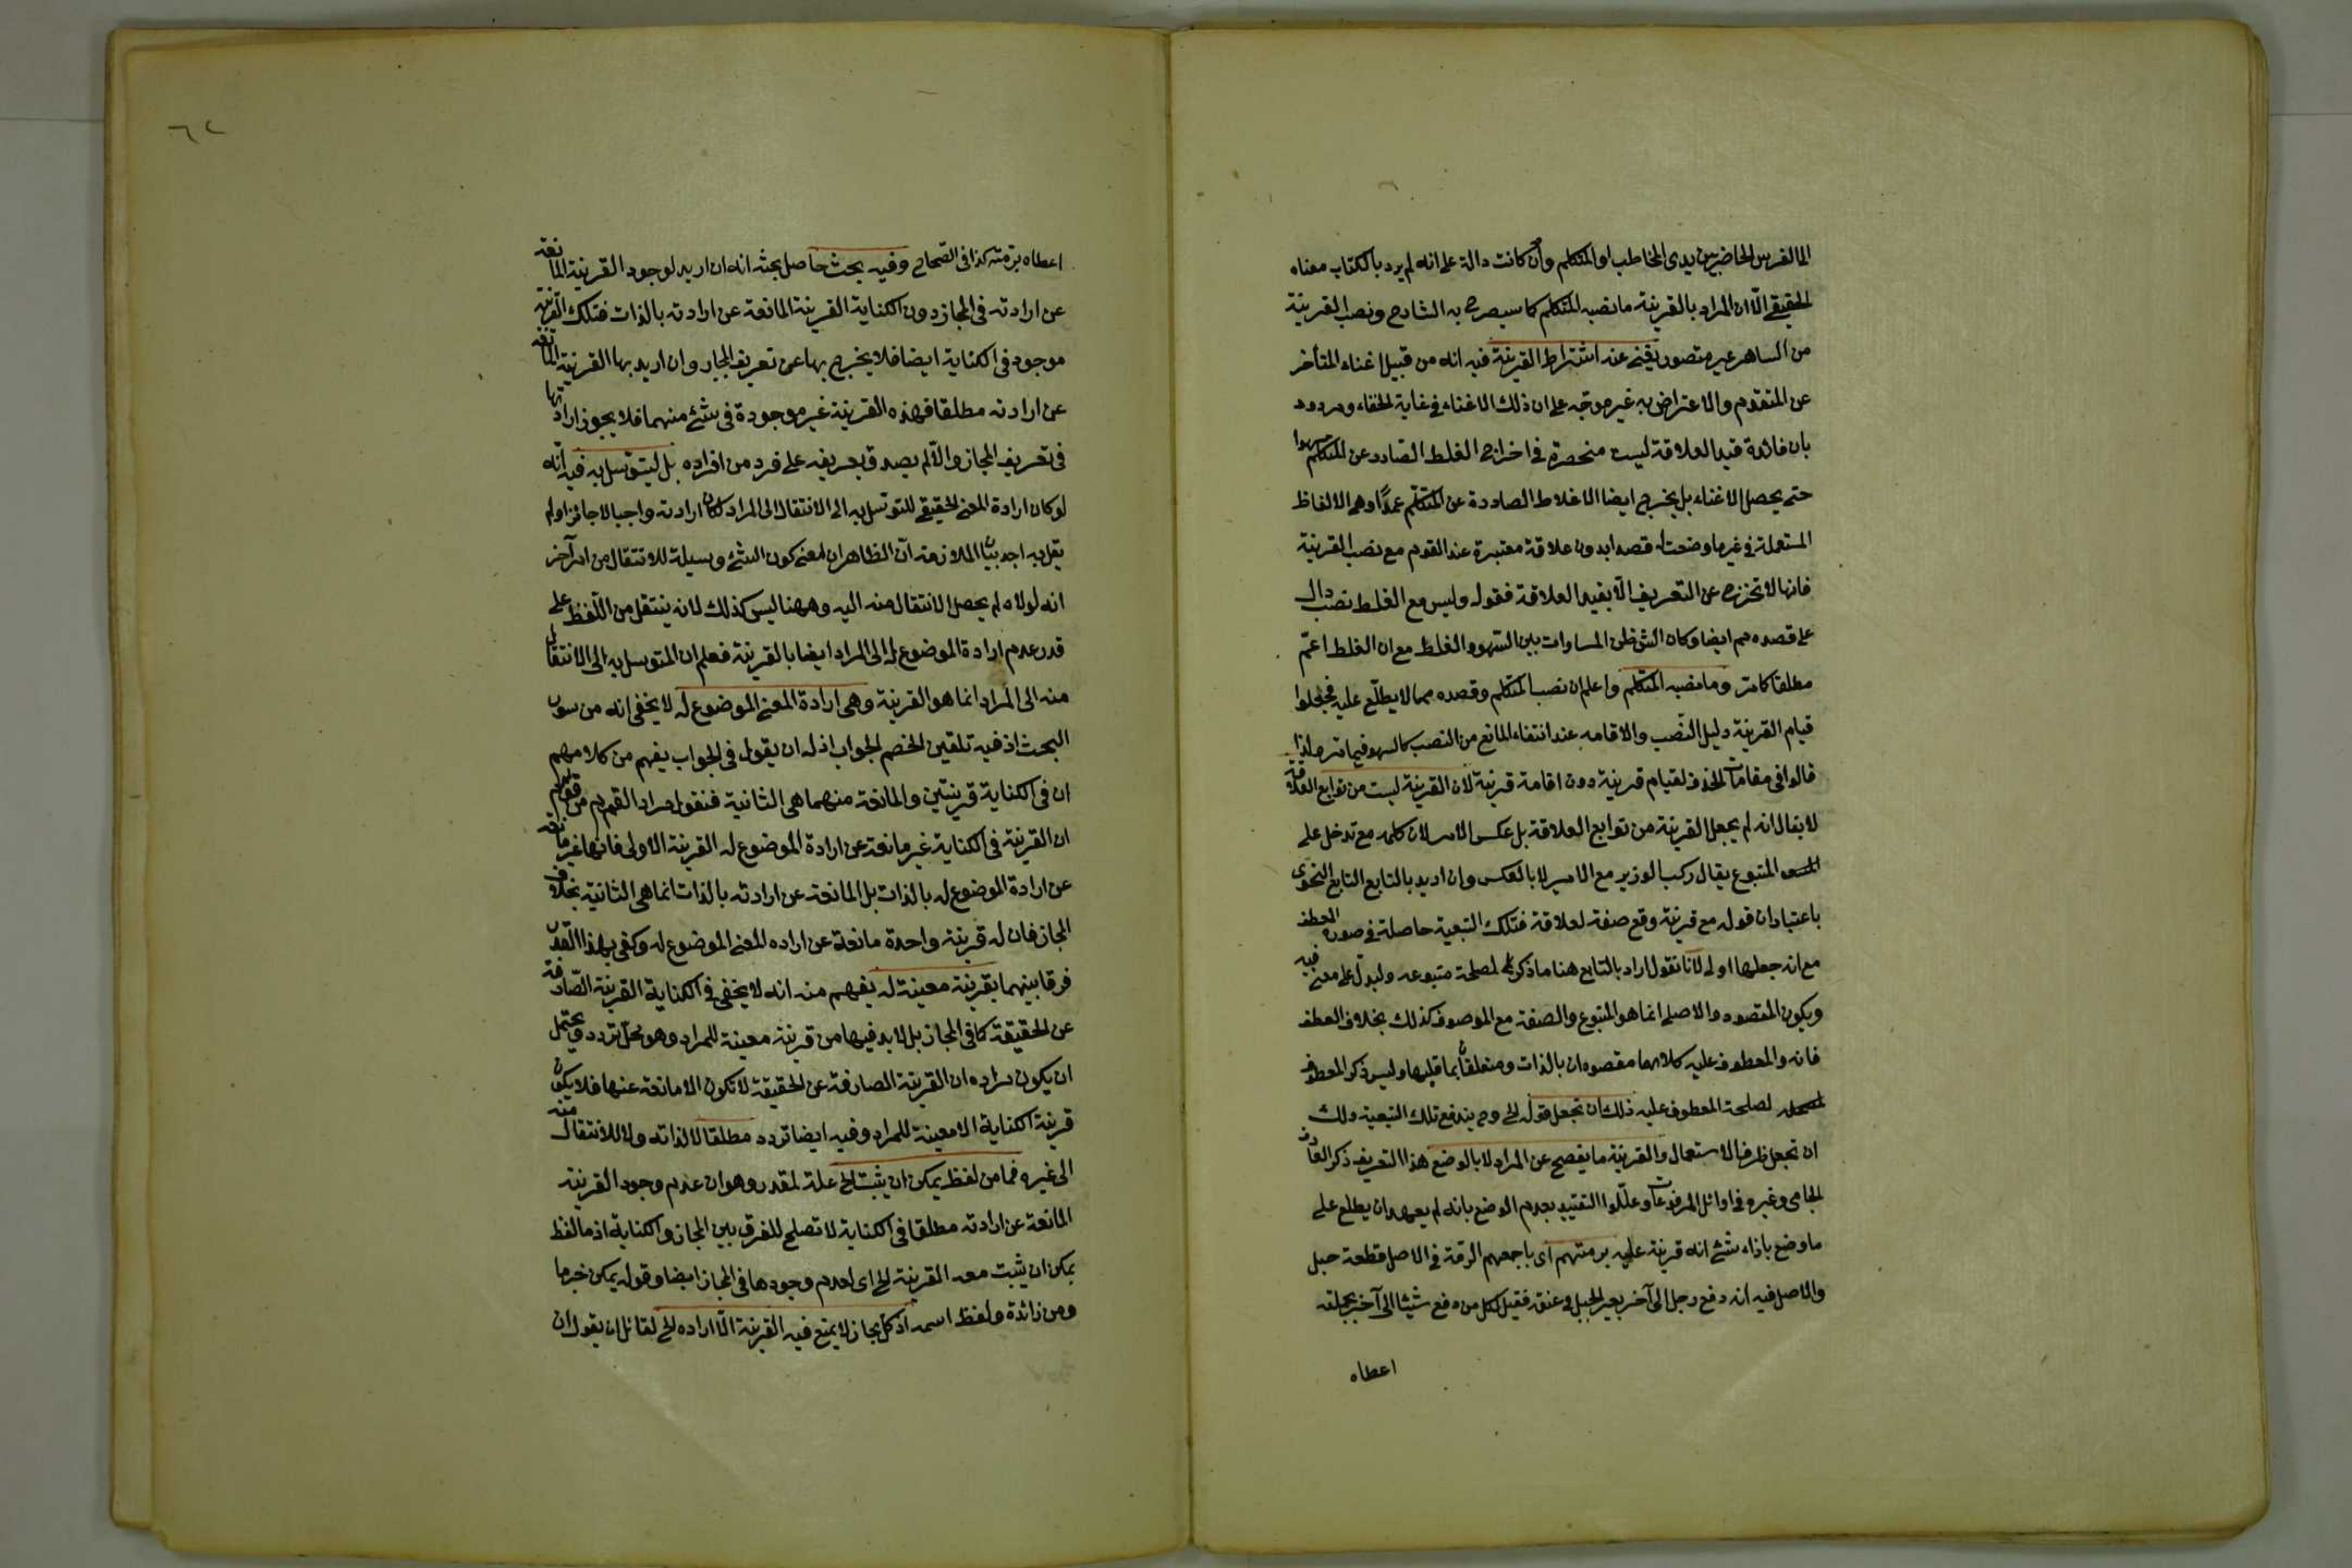 الى الفرس الحاضر بين يدى المخاطب او المتكلم وان كانت دالة على انه لم يرد بالكتاب معناه
الحقيقى الا ان المراد بالقرينة ما نصبه المتكلم كما سيصرح به الشارح ونصب القرينة
من الساهى غير متصور يغنى عنه اشتراط القرينة فيه انه من قبيل اغناء المتأخر
عن المتقدم والاعتراض به غير موجه على ان ذلك الاغناء فى غاية الخفاء ومردود
بان فائدة قيد العلاقة ليست منحصرة فى اخراج الغلط الصادر عن المتكلم سهوا
حتى يحصل الاغناء بل يخرج ايضا الاغلاط الصادرة عن المتكلم عمدا وهى الالفاظ
المستعملة فى غير ما وضعت له قصدا بدون علاقة معتبرة عند القوم مع نصب القرينة
فانها لا تخرج عن التعريف الا بقيد العلاقة فقوله وليس مع الغلط نصب دال
على قصده مم ايضا وكان الش ظن المساوات بين السهو والغلط مع ان الغلط اعم
مطلقا كما مر وما نصبه المتكلم واعلم ان نصب المتكلم وقصده مما لا يطلع عليه فجعلوا
قيام القرينة دليل النصب والاقامه عند انتفاء المانع من النصب كالسهو فيما مر ولذا
قالوا فى مقامات الحذف لقيام قرينة دون اقامة قرينة لان القرينة ليست من توابع العلاقة
لا يقال انه لم يجعل القرينة من توابع العلاقة بل عكس الامر لان كلمة مع تدخل على
المتبوع يقال ركب الوزير مع الامير لا بالعكس وان اريد بالتابع التابع النحوى
باعتبار ان قوله مع قرينة وقع صفة لعلاقة فتلك التبعية حاصلة فى صورة العطف
مع انه جعلها اولى لانا نقول اراد بالتابع هنا ما ذكر لمصلحة متبوعه وليدل على معنى فيه
ويكون المقصود والاصلى انما هو المتبوع والصفة مع الموصوف كذلك بخلاف العطف
فانه والمعطوف عليه كلاهما مقصودان بالذات ومتعلقان بما قبلها وليس ذكر المعطوف
لمصلحة المعطوف عليه ذلك ان تجعل قوله الخ وح يندفع تلك التبعية ولك
ان تجعل ظرفا لاستعمال والقرينة ما يفصح عن المراد لا بالوضع هذا التعريف ذكر العارف
الجامى وغيره فى اوائل المرفوعات وعللوا التقييد بعدم الوضع بانه لم يعهد ان يطلع على
ما وضع بازاء شئ انه قرينة عليه برمتهم اى باجمعهم الرمة فى الاصل قطعة حبل
والاصل فيه انه دفع رجل الى آخر بعير الحبل فى عنقه فقيل لكل من دفع شيئا الى آخر بجملته
اعطاه
٦٢
اعطاه برمته كذا فى الصحاح وفيه بحث حاصل بحثه انه ان اريد لوجود القرينة المانعة
عن ارادته فى المجاز دون الكناية القرينة المانعة عن ارادته بالذات فتلك القرينة
موجود فى الكناية ايضا فلا يخرج بها عن تعريف المجاز وان اريد بها القرينة المانعة
عن ارادته مطلقا فهذه القرينة غير موجودة فى شئ منهما فلا يجوز ارادتها
فى تعريف المجاز والا لم يصدق تعريفه على فرد من افراده بل ليتوسل به فيه انه
لو كان ارادة المعنى الحقيقى للتوسل به الى الانتقال الى المراد لكان ارادته واجبا لا جائزا ولم
يقل به احد بيان الملازمة ان الظاهر ان معنى كون الشئ وسيلة للانتقال من امر آخر
انه لولاه لم يحصل الانتقال منه اليه وههنا ليس كذلك لانه ينتقل من اللفظ على
قدر عدم ارادة الموضوع له الى المراد ايضا بالقرينة فعلم ان المتوسل به الى الانتقال
منه الى المراد انما هو القرينة وهى ارادة المعنى الموضوع له لا يخفى انه من سوء
البحث اذ فيه تلقين الخصم الجواب اذ له ان يقول فى الجواب يفهم من كلامهم
ان فى الكناية قرينتين والمانعة منهما هى الثانية فنقول مراد القوم من قولهم
ان القرينة فى الكناية غير مانعة عن ارادة الموضوع له القرينة الاولى فانها غير مانعة
عن ارادة الموضوع له بالذات بل المانعة عن ارادته بالذات انما هى الثانية بخلاف
المجاز فان له قرينة واحدة مانعة عن اراده المعنى الموضوع له وكفى بهذا القدر
فرقا بينهما بقرينة معينة له يفهم منه انه لا يخفى فى الكناية القرينة الصارفة
عن الحقيقة كما فى المجاز بل لا بد فيها من قرينة معينة للمراد وهو محل تردد ويحتمل
ان يكون مراده ان القرينة الصارفة عن الحقيقة لا تكون الا مانعة عنها فلا يكون
قرينة الكناية الا معينة للمراد وفيه ايضا تردد مطلقا لا لذاته ولا للانتقال منه
الى غيره فما من لفظ يمكن ان يثبت الخ علة لمقدر وهو ان عدم وجود القرينة
المانعة عن ارادته مطلقا فى الكناية لا تصلح للفرق بين المجاز والكناية اذ ما لفظ
يمكن ان يثبت معه القرينة الخ اى لعدم وجودها فى المجاز ايضا وقوله يمكن خبر ما
ومن زائدة ولفظ اسمه اذ كل مجاز لا يمنع فيه القرينة الا اراده الخ لقائل ان يقول ان